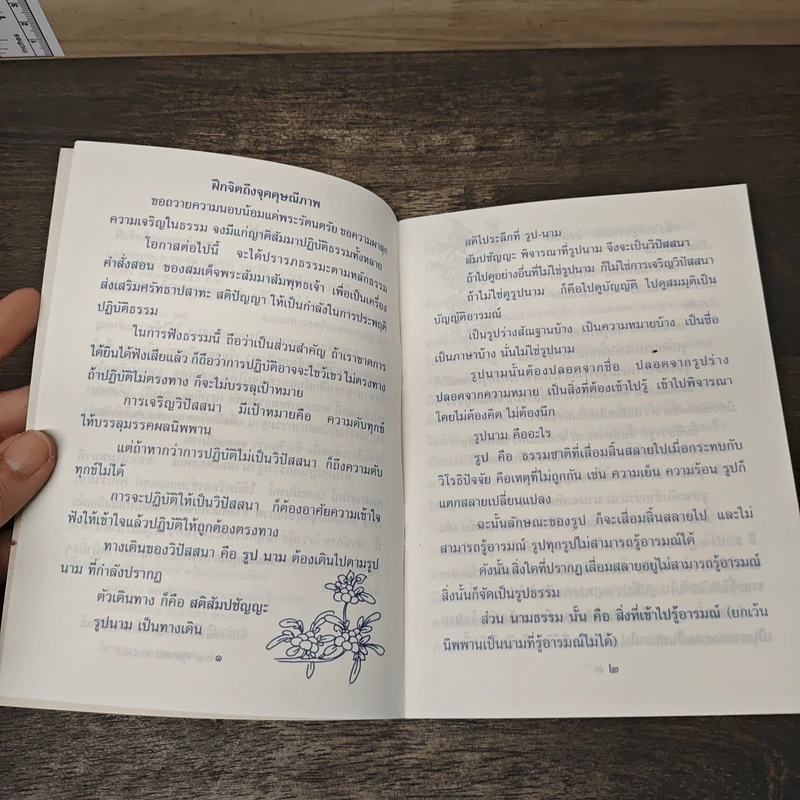 ฝึกจิตถึงจุดดุษณีภาพ
ขอถวายความนอบน้อมแด่พระรัตนตรัย ขอความผาสุก
ความเจริญในธรรม จงมีแก่ญาติสัมมาปฏิบัติธรรมทั้งหลาย
โอกาสต่อไปนี้ จะได้ปรารภธรรมะตามหลักธรรม
คำสั่งสอน ของสมเด็จพระสัมมาสัมพุทธเจ้า เพื่อเป็นเครื่อง
ส่งเสริมศรัทธาปสาทะ สติปัญญา ให้เป็นกำลังในการประพฤติ
ปฏิบัติธรรม
ในการฟังธรรมนี้ ถือว่าเป็นส่วนสำคัญ ถ้าเราขาดการ
ได้ยินได้ฟังเสียแล้ว ก็ถือว่าการปฏิบัติอาจจะไขว้เขว ไม่ตรงทาง
ถ้าปฏิบัติไม่ตรงทาง ก็จะไม่บรรลุเป้าหมาย
การเจริญวิปัสสนา มีเป้าหมายคือ ความดับทุกข์
ให้บรรลุมรรคผลนิพพาน
แต่ถ้าหากว่าการปฏิบัติไม่เป็นวิปัสสนา ก็ถึงความดับ
ทุกข์ไม่ได้
การจะปฏิบัติให้เป็นวิปัสสนา ก็ต้องอาศัยความเข้าใจ
ฟังให้เข้าใจแล้วปฏิบัติให้ถูกต้องตรงทาง
ทางเดินของวิปัสสนา คือ รูป นาม ต้องเดินไปตามรูป
นาม ที่กำลังปรากฏ
ตัวเดินทาง ก็คือ สติสัมปชัญญะ
รูปนาม เป็นทางเดิน
๑
สติไประลึกที่ รูป-นาม
สัมปชัญญะ พิจารณาที่รูปนาม จึงจะเป็นวิปัสสนา
ถ้าไปดูอย่างอื่นที่ไม่ใช่รูปนาม ก็ไม่ใช่การเจริญวิปัสสนา
ถ้าไม่ใช่ดูรูปนาม ก็คือไปดูบัญญัติ ไปดูสมมุติเป็น
บัญญัติอารมณ์
เป็นรูปร่างสัณฐานบ้าง เป็นความหมายบ้าง เป็นชื่อ
เป็นภาษาบ้าง นั่นไม่ใช่รูปนาม
รูปนามนั้นต้องปลอดจากชื่อ ปลอดจากรูปร่าง
ปลอดจากความหมาย เป็นสิ่งที่ต้องเข้าไปรู้ เข้าไปพิจารณา
โดยไม่ต้องคิด ไม่ต้องนึก
รูปนาม คืออะไร
รูป คือ ธรรมชาติที่เสื่อมสิ้นสลายไปเมื่อกระทบกับ
วิโรธิปัจจัย คือเหตุที่ไม่ถูกกัน เช่น ความเย็น ความร้อน รูปก็
แตกสลายเปลี่ยนแปลง
ฉะนั้นลักษณะของรูป ก็จะเสื่อมสิ้นสลายไป และไม่
สามารถรู้อารมณ์ รูปทุกรูปไม่สามารถรู้อารมณ์ได้
ดังนั้น สิ่งใดที่ปรากฏ เสื่อมสลายอยู่ไม่สามารถรู้อารมณ์
สิ่งนั้นก็จัดเป็นรูปธรรม
ส่วน นามธรรม นั้น คือ สิ่งที่เข้าไปรู้อารมณ์ (ยกเว้น
นิพพานเป็นนามที่รู้อารมณ์ไม่ได้)
๒